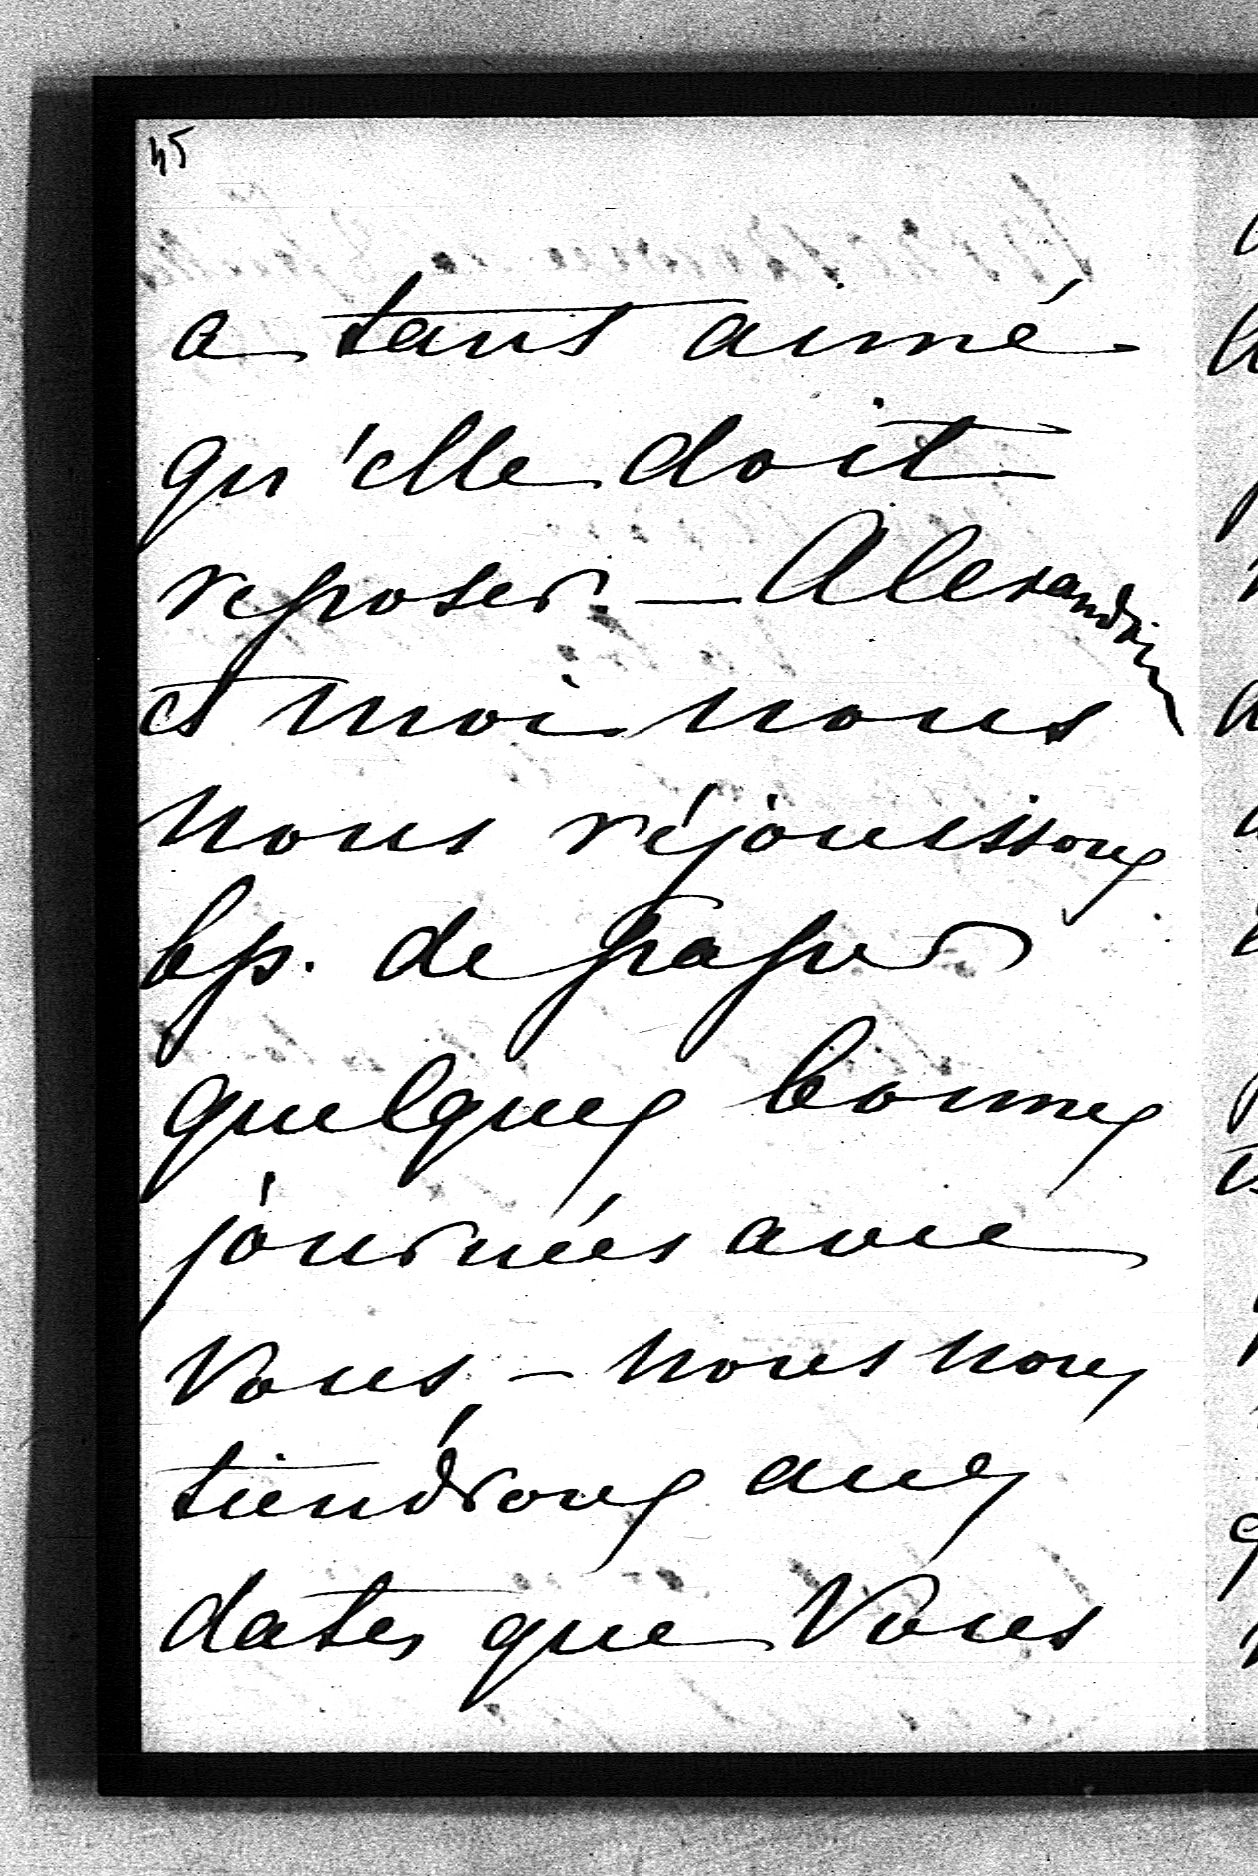 45
a tant aimé
qu'elle doit
reposer. — Alexandrine
et moi nous
nous réjouissons
bp. de passer
quelques bonnes
journées avec
Vous, — nous nous
tiendrons aux
dates que Vous